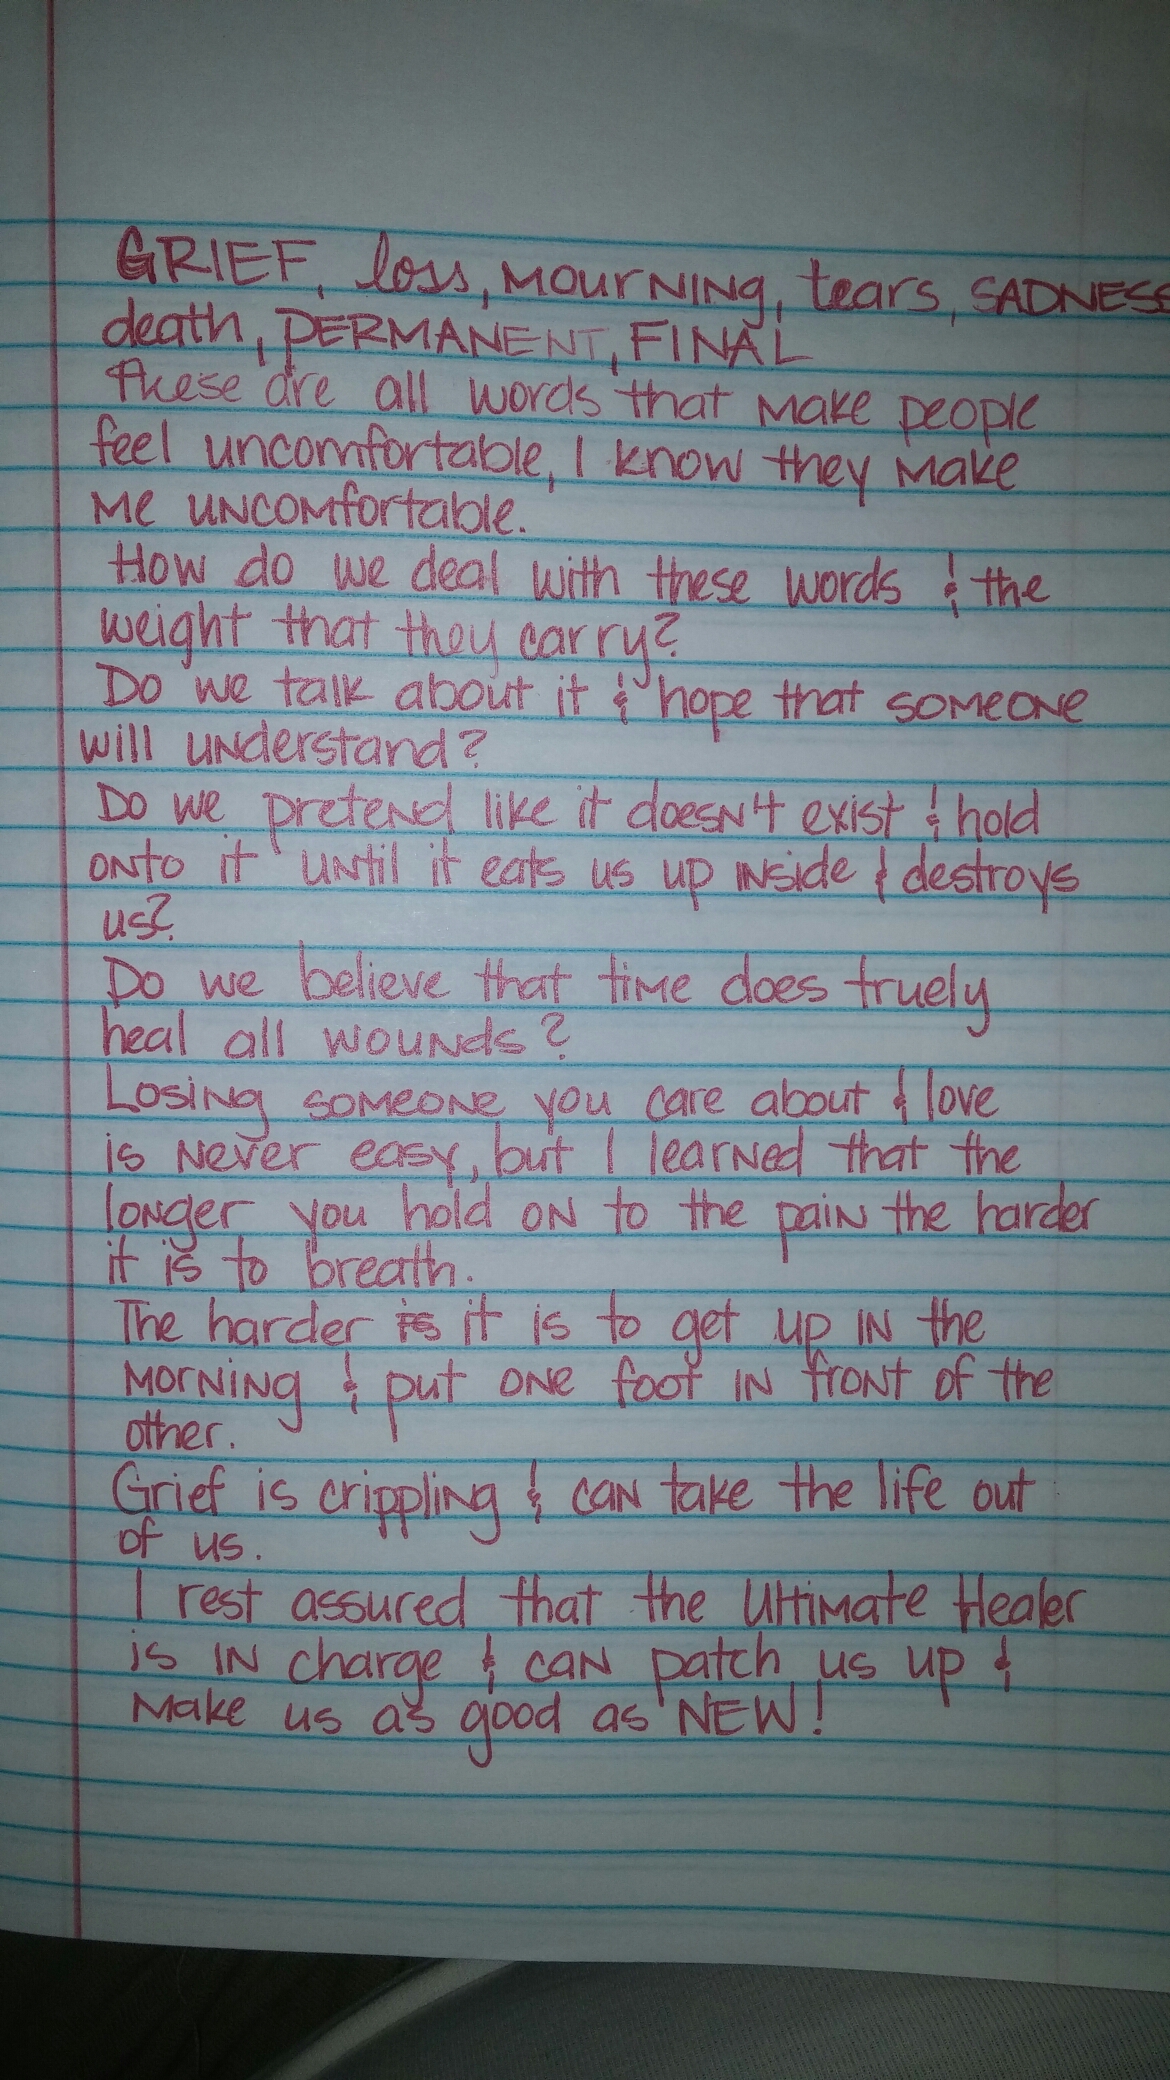 GRIEF, loss, MOURNING, tears, SADNESS
death, PERMANENT, FINAL
These are all words that make people
feel uncomfortable, I know they make
me uncomfortable.
How do we deal with these words & the
weight that they carry?
Do we talk about it & hope that someone
will understand?
Do we pretend like it doesn't exist & hold
onto it until it eats us up inside & destroys
us?
Do we believe that time does truely
heal all wounds?
Losing someone you care about & love
is never easy, but I learned that the
longer you hold on to the pain the harder
it is to breath.
The harder is it is to get up in the
morning & put one foot in front of the
other.
Grief is crippling & can take the life out
of us.
I rest assured that the Ultimate Healer
is in charge & can patch us up &
make us as good as NEW!